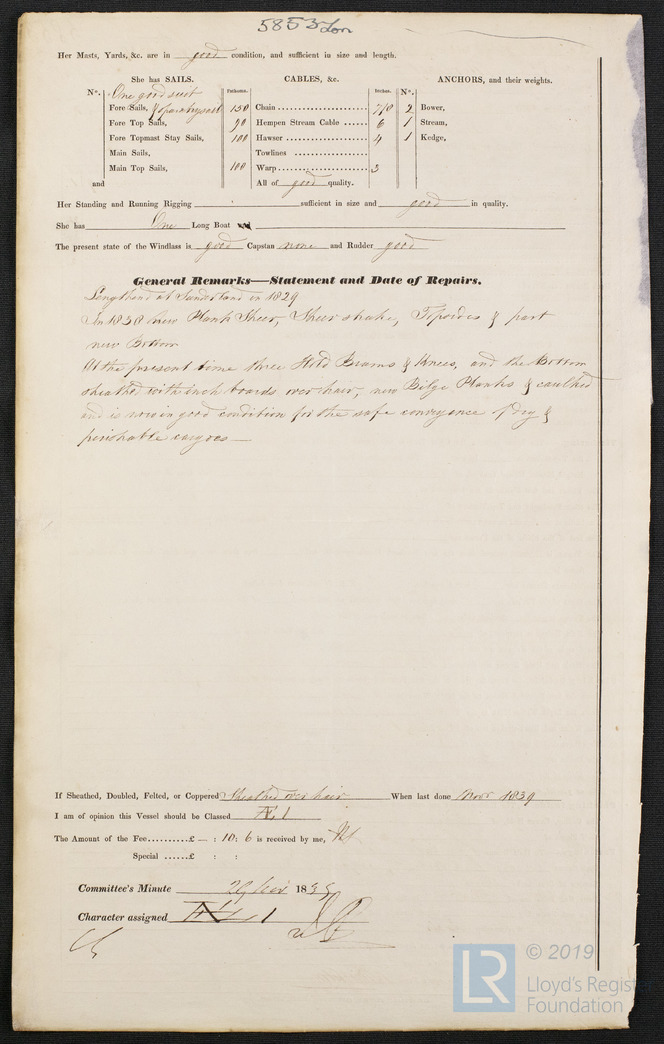 5853 Lon
Her Masts, Yards, &c. are in good condition, and sufficient in size and length.
She has SAILS.
CABLES, &c.
ANCHORS, and their weights.
N°.
Fathoms.
Inches.
N°.
One good suit
Fore Sails,
150 Chain
7/8
2 Bower,
Fore Top Sails,
90 Hempen Stream Cable
6
1 Stream,
Fore Topmast Stay Sails,
100 Hawser
4
1 Kedge,
Main Sails,
Towlines
Main Top Sails,
100 Warp
3
and
All of good quality.
Her Standing and Running Rigging sufficient in size and good in quality.
She has One Long Boat and
The present state of the Windlass is good Capstan none and Rudder good
General Remarks—Statement and Date of Repairs.
Lengthened at Sunderland in 1829
In 1838 new Plank Sheer, Sheer strake, Topsides & part
new Bottom
At the present time three Hold Beams & Knees, and the Bottom
sheathed with inch boards over hair, new Bilge Planks & caulked
and is now in good condition for the safe conveyance of Dry &
perishable cargoes —
If Sheathed, Doubled, Felted, or Coppered Sheathed over hair When last done Novr 1839
I am of opinion this Vessel should be Classed Æ 1
The Amount of the Fee..........£ — : 10 : 6 is received by me,
Special ......£ : :
Committee's Minute 29 1839
Character assigned Æ 1
© 2019
LR
Lloyd's Register
Foundation